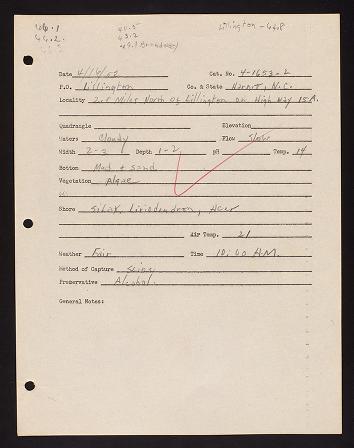 46.1
44.2
40.5
43.2
49.1 Broadway
Lillington - 44.8
Date 4/16/52 Cat. No. 4-1653-2
P.O. Lillington Co. & State Harnett, N.C.
Locality 2.5 Miles North of Lillington on High Way 15A.
Quadrangle Elevation
Water: Cloudy Flow Slow
Width 2-3 Depth 1-2 pH Temp. 14
Bottom Mud + sand
Vegetation Algae
Shore Silax, Liriodendron, Acer
Air Temp. 21
Weather Fair Time 10:00 A.M.
Method of Capture Seing
Preservative Alcohol
General Notes: